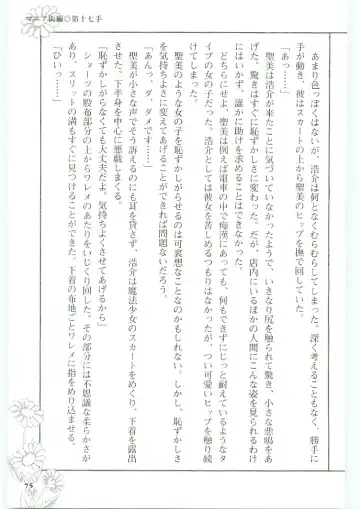 マニア街編◎第十七手
あまり色っぽくはないが、浩介は何となくむらむらしてしまった。深く考えることもなく、勝手に
手が動き、彼はスカートの上から聖美のヒップを撫で回していた。
「あっ……」
聖美は浩介が来たことに気づいていなかったようで、いきなり尻を触られて驚き、小さな悲鳴をあ
げた。驚きはすぐに恥ずかしさに変わった。だが、店内にいるほかの人間にこんな姿を見られるわけ
にはいかず、誰かに助けを求めることはできなかった。
どちらにせよ、聖美は例えば電車の中で痴漢にあっても、何もできずにじっと耐えているようなタ
イプの女の子だった。浩介としては彼女を苦しめるつもりはなかったが、つい可愛いヒップを触り続
けてしまった。
聖美のような女の子を恥ずかしがらせるのは可哀想なことなのかもしれない。しかし、恥ずかしさ
を気持ちよさに変えてあげることができれば問題ないだろう。
「あんっ、ダ、ダメです……」
聖美が小さな声でそう訴えるのにも耳を貸さず、浩介は魔法少女のスカートをめくり、下着を露出
させた。下半身を中心に悪戯しまくる。
「恥ずかしがらなくても大丈夫だよ。気持ちよくさせてあげるから」
ショーツの股布部分の上からワレメのあたりをいじくり回した。その部分には不思議な柔らかさが
あり、スリットの溝もすぐに見つけることができた。下着の布地ごとワレメに指をめり込ませる。
「ひいっ……」
75